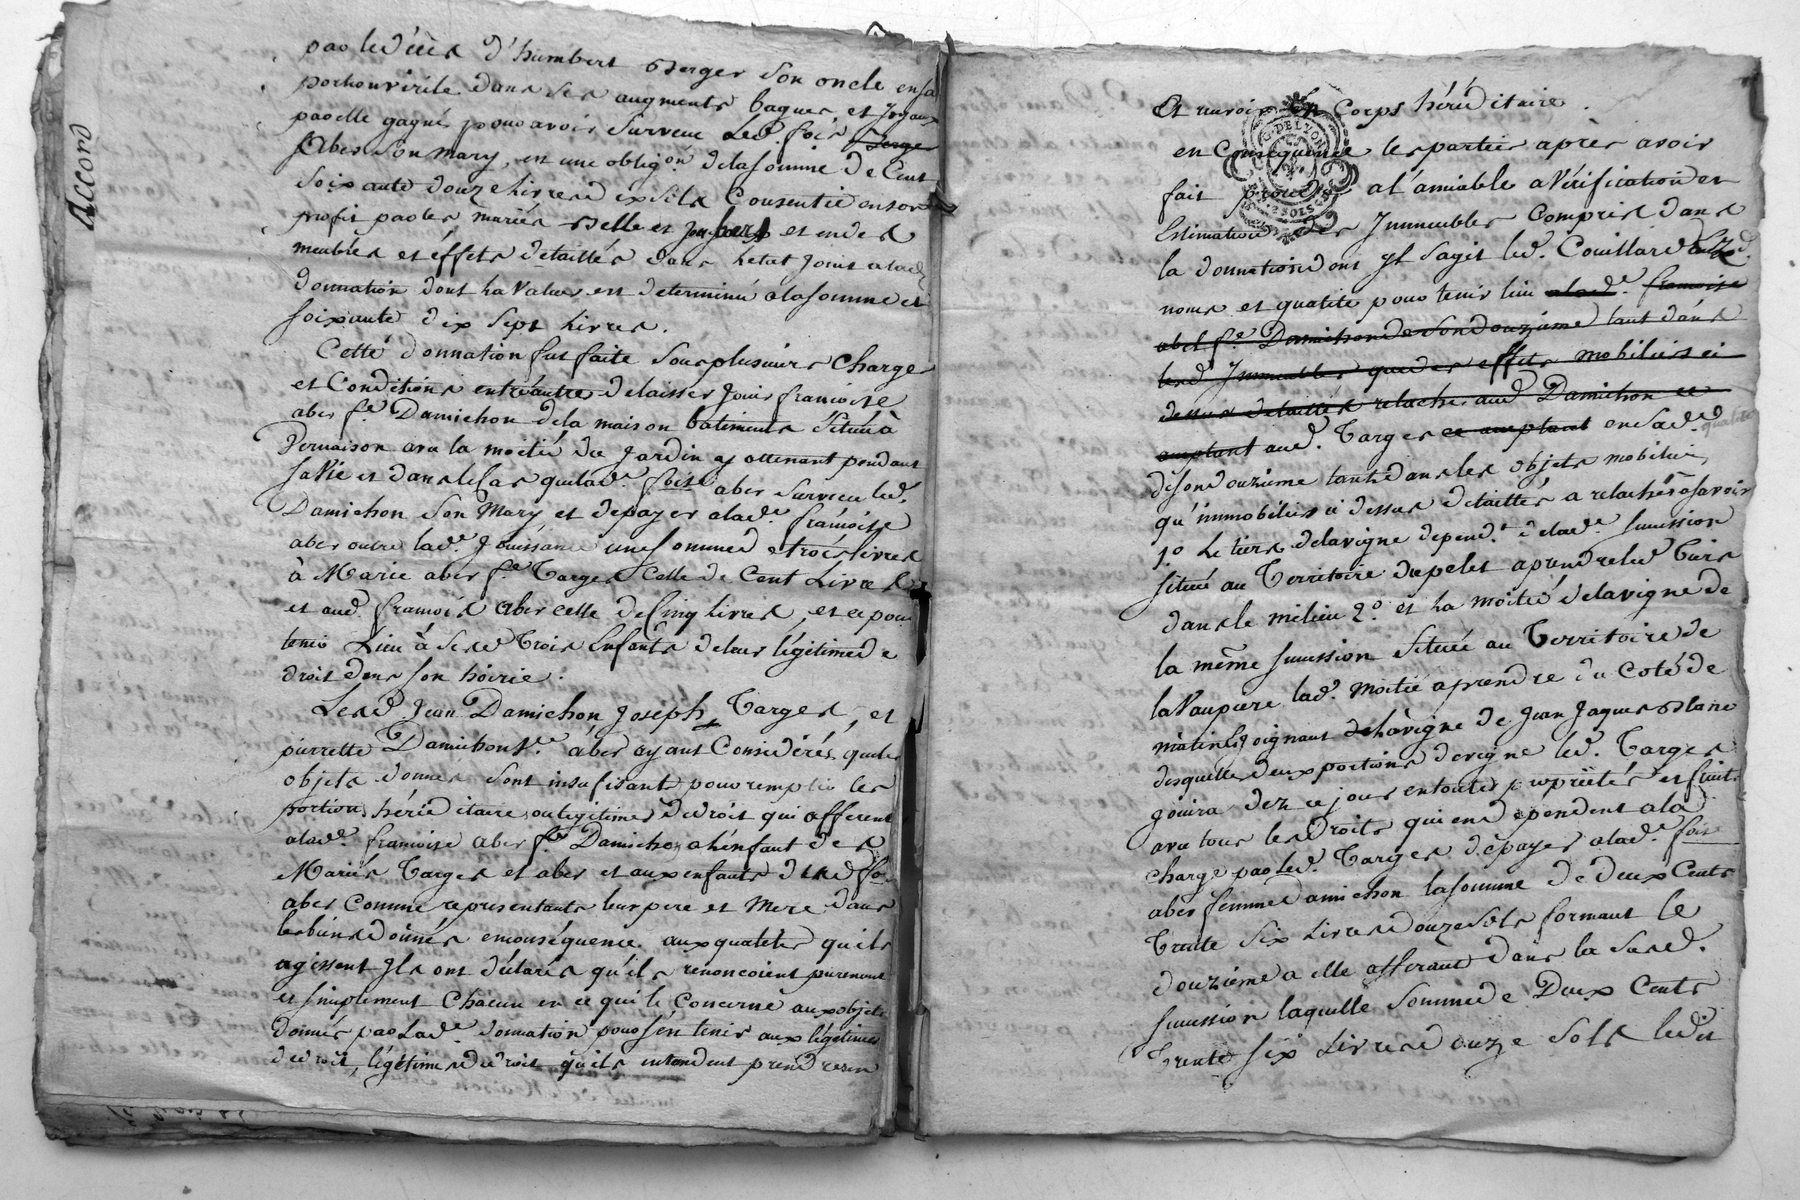 Accord
par le décès d'humbert Berger son oncle en sa
portion virile dans ses augments bagues, et Joyaux
par elle gagnés pour avoir Survecu led. fois Berger
Aber son mary, en une oblig.on de la somme de Cent
Soixante douze Livres dix sols Consentie en son
profit par les mariés Belle et et en des
meubles et éffets detaillés dans l'etat Joint a lad.
donnation dont La Valeur est determinée à la somme de
soixante dix sept Livres.
Cette donnation fut faite Sous plusieurs Charges
et Conditions entr'autres de laisser Jouir françoise
aber f.e Damichon de la maison batiments Situé à
Vernaison avec la moitié du Jardin y attenant pendant
sa Vie et dans le Cas que lad. fois aber Survecu led.
Damichon Son Mary et de payer a lad.e françoise
aber outre lad.e Jouissance une somme de trois Livres
à Marie aber f.e Targes Celle de Cent Livres
et aud. françois Aber celle de Cinq livres, et ce pour
tenir Lieu à Sesd. Trois Enfants de leur légitime de
droit dans son hoirie.
Lesd. Jean Damichon Joseph Targes, et
pierrette Damichon V.e aber ayant Considérés que les
objets donnés sont insufisants pour remplir les
portions héréditaire, ou legitimes de droit qui afferent
a lad.e françoise aber f.e Damichon, a l'énfant des
Mariés Targes et aber et aux enfants desd. fois
aber Comme representants leur pere et Mere dans
les biens donnés en conséquence aux qualités qu'ils
agissent Ils ont déclarés qu'ils renoncoient purement
et simplement Chacun en ce qui le Concerne aux objets
donnés par Lad.e donnation pour s'en tenir aux légitimes
de droit, légitimes de droit qu'ils entendent prendre en
et avoir en Corps héréditaire.
en Conséquence les parties après avoir
fait procéder a l'amiable a Vérification et
Estimation des Immeubles Compris dans
la donnation dont Il s'agit led. Couillard
noms et qualité pour tenir lieu a lad.e françoise
aber f.e Damichon de son douziéme tant dans
lesd. Immeubles que des effets mobiliers ci
dessus detaillés relache aud. Damichon ce
acceptant aud. Targes ce acceptant en sad.e qualité
de son douziéme tant dans les objets mobiliers
qu'immobiliers ci dessus detaillés a relachés a savoir
1.o Le tiers de la vigne depend.t de lad.e succession
située au Territoire du pelet a prendre led. tiers
dans le milieu 2.o et La moitié de la vigne de
la même succession Située au Territoire de
la Vaupiere lad.e moitié a prendre du Coté de
matin Joignant de la vigne de Jean Jaques Blanc
desquelles deux portions de vigne led. Targes
jouira dez ce jour en toutes propriétés et fruits
avec tous les droits qui en dependent a la
charge par Led. Targes de payer a lad.e foise
aber femme damichon la somme de deux Cents
Trente Six Livres douze Sols formant le
douziéme a elle afferant dans la susd.
succession laquelle Somme de Deux Cents
Trente six Livres douze Sols ledit
G. DE LYON
2 SOLS